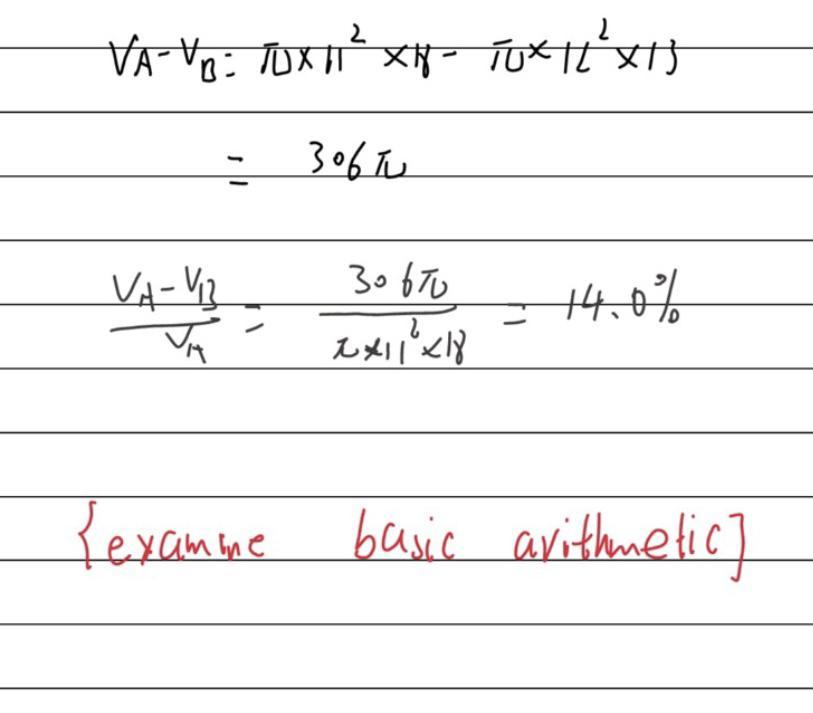 VA-VB = π×11² ×18 - π×12²×13
= 306π
VA-VB / VA = 306π / π×11²×18 = 14.0%
{examine basic arithmetic]